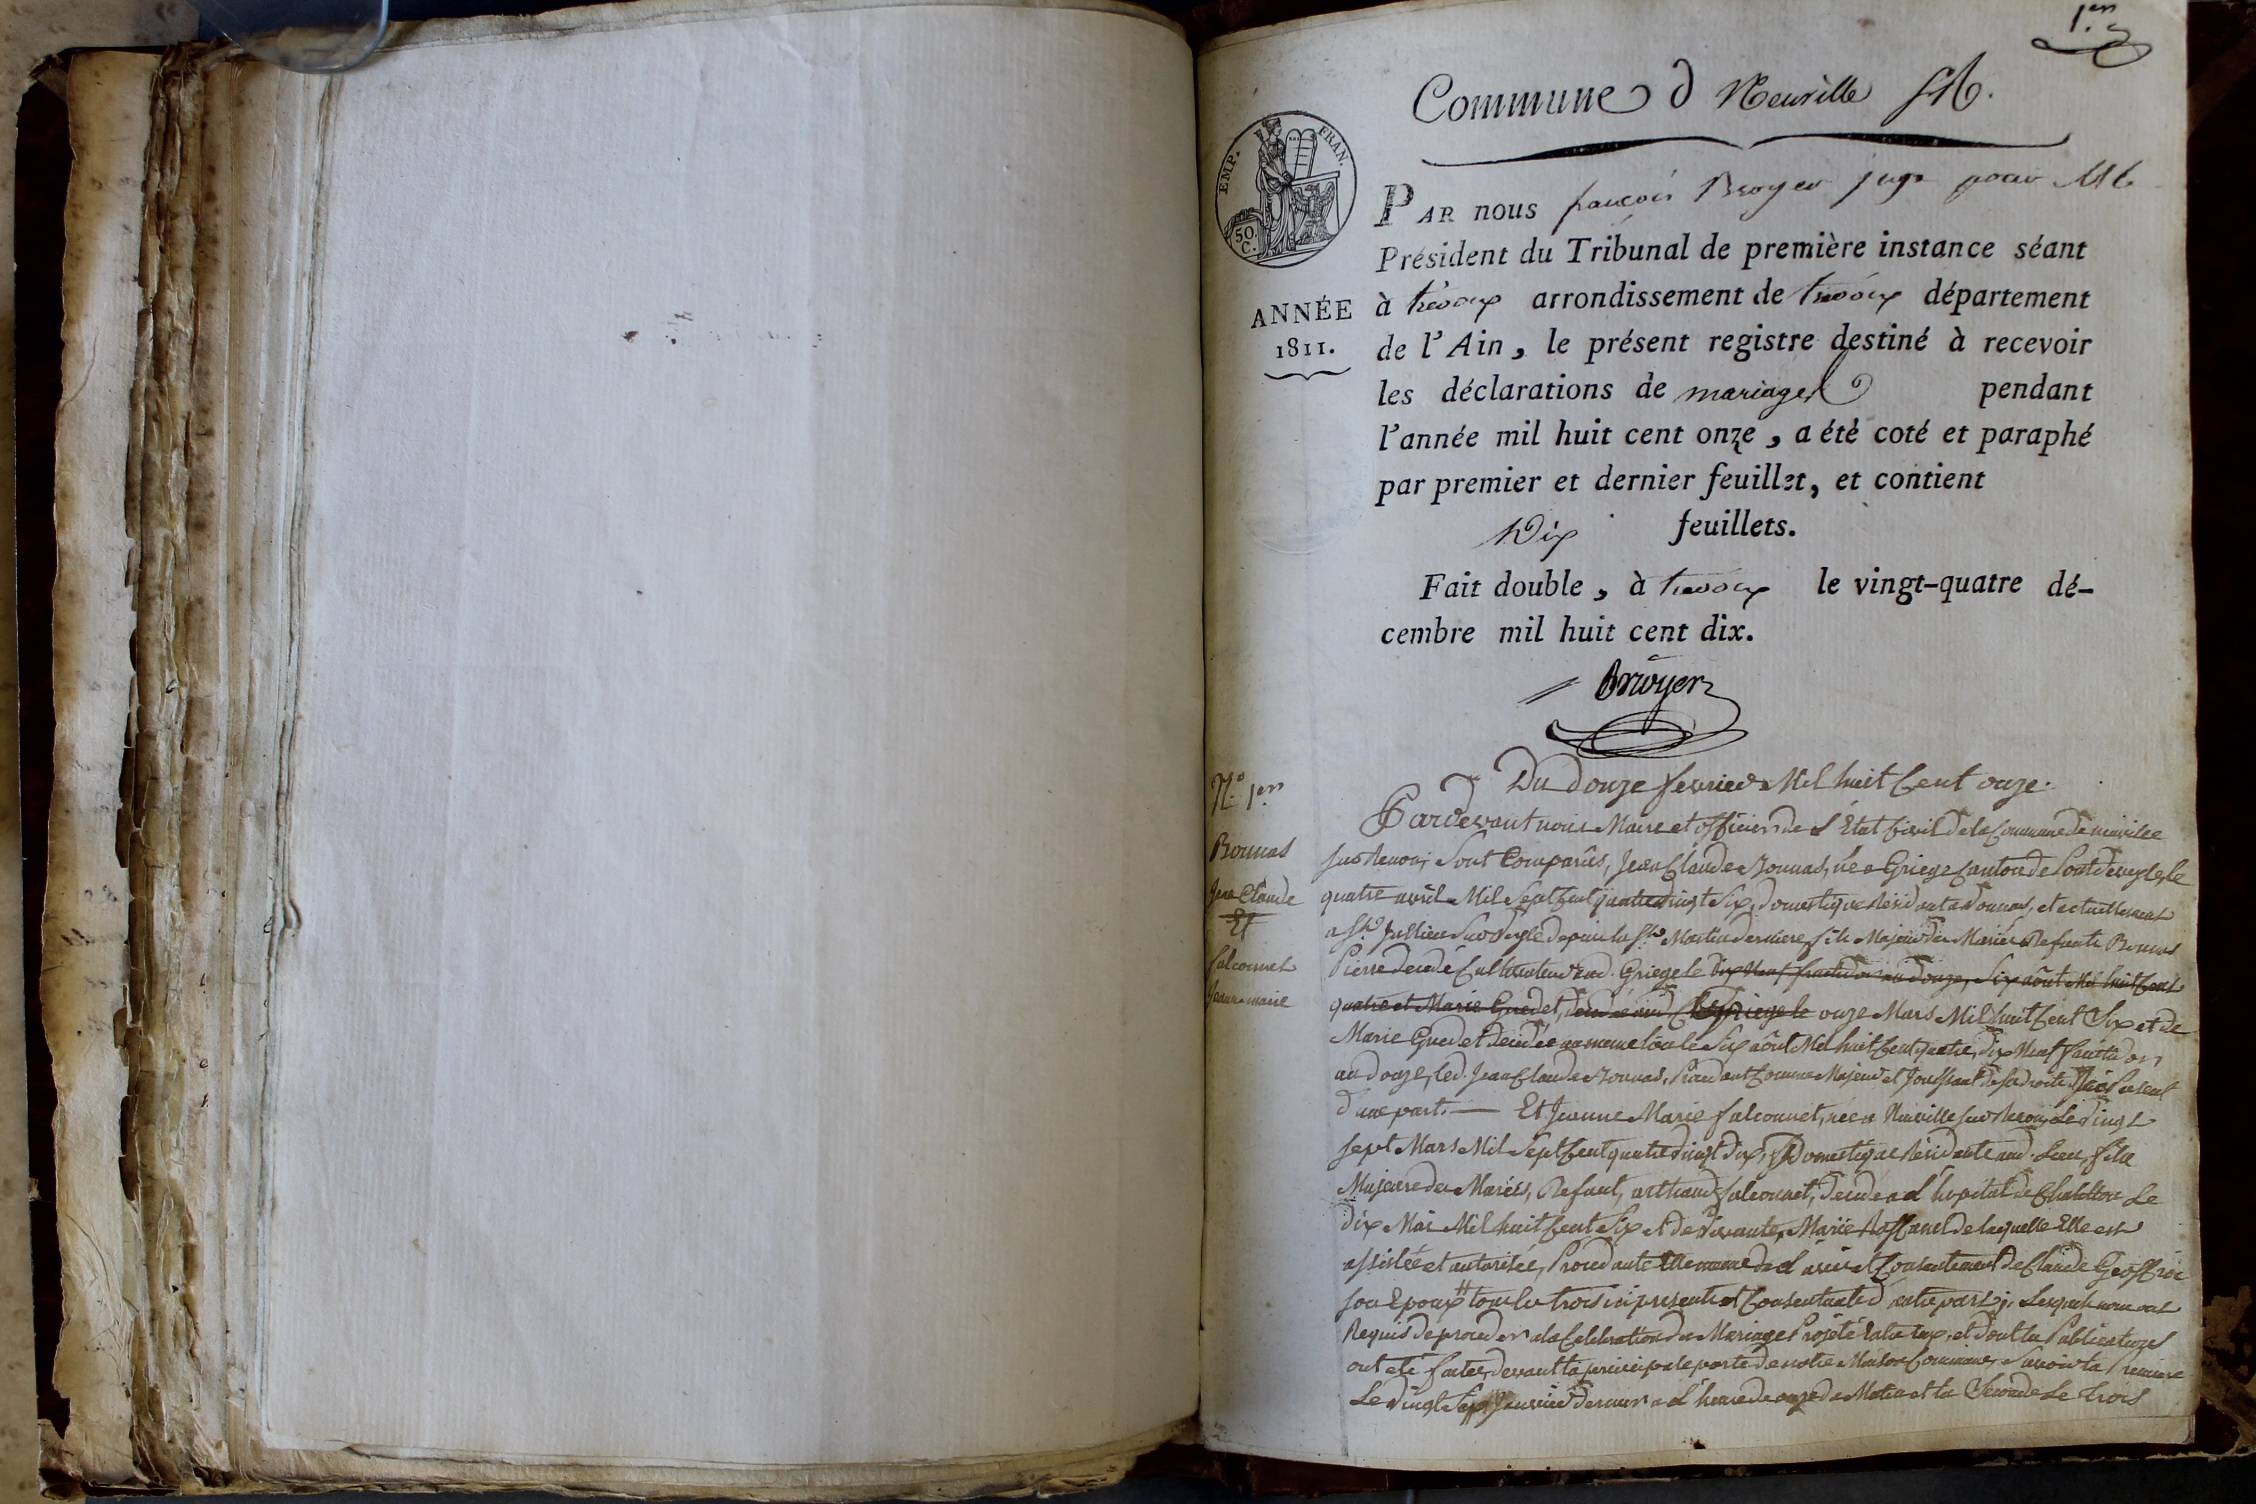 1.er
Commune d Neuville SR.
EMP. FRAN.
50. C.
PAR nous françois Broyer juge pour Mr le
Président du Tribunal de première instance séant
à trévoux arrondissement de trévoux département
de l'Ain, le présent registre destiné à recevoir
les déclarations de mariages pendant
l'année mil huit cent onze, a été coté et paraphé
par premier et dernier feuillet, et contient
Dix feuillets.
Fait double, à trévoux le vingt-quatre dé-
cembre mil huit cent dix.
ANNÉE
1811.
Broyer
N.º 1.er
Bonnas
Jean Claude
Et
falconnet
Jeanne marie
Du douze fevrier Mil huit Cent onze.
Pardevant nous Maire et officier de L'Etat Civil de la Commune de neuville
sur Renon; Sont Comparûs, Jean Claude Bonnas, né a Griege Canton de Pont de veyle, le
quatre avril Mil Sept Cent quatre vingt Six, domestique résidant a Vonnas, et actuellement
a St. Jullien sur Veyle depuis la St. Martin derniere, fils Majeur des Mariés Defunts Bonnas
Pierre decedé Cultivateur aud. Griege le dix Neuf fructidor an douze, Six aôut Mil huit Cent
quatre et Marie Guedet, decedée aud. Griege le onze Mars Mil huit Cent Six et de
Marie Guedet decedée au meme lieu le Six aôut Mil huit Cent quatre, dix Neuf fructidor
an douze, led. Jean Claude Bonnas, Procedant Comme Majeur et Jouissant de ses droits, ici present
d'une part. — Et Jeanne Marie falconnet, née a Neuville sur Renon, Le Vingt
sept Mars Mil Sept Cent quatre vingt dix, Domestique résidante aud. Lieu, fille
Majeure des Mariés, Defunt, arthaud falconnet, decedé a L'hopital de Chatillon Le
dix Mai Mil huit Cent Six et de vivante, Marie Raffanel de laquelle Elle est
assistée et autorisée, Procedante Elle meme de L'avis et Consentement de Claude Geoffroi
son Epoux tous les trois ici presents et Consentants d'autre part; Lesquels nous ont
Requis de proceder a la Celebration du Mariage Projeté Entre Eux, et dont les Publications
ont été faites, devant la principale porte de notre Maison Commune, Savoir la Premiere
Le Vingt Sept Janvier dernier a L'heure de onze du Matin et la Seconde Le trois